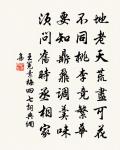 地老天荒盡可花
不同桃李競繁華
要知鼎鼐調羹味
須問舊時丞相家
王冕素梅四七詞典網